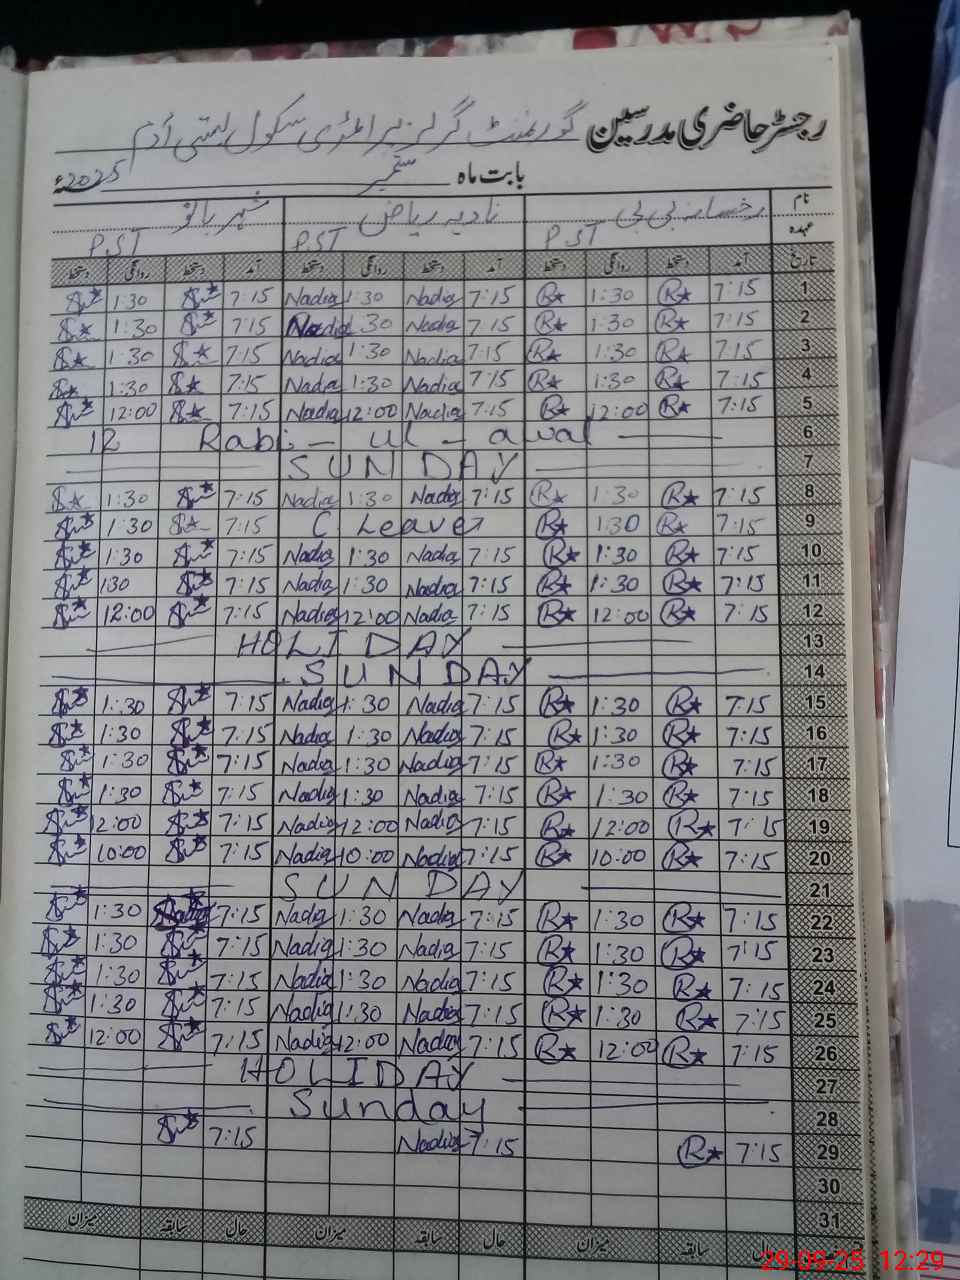 رجسٹر حاضری مدرسین گورنمنٹ گرلز پرائمری سکول بستی آدم
بابت ماہ ستمبر 2025ء
نام رخسانہ بی بی نادیہ ریاض شہر بانو
عہدہ P.ST P.ST P.ST
تاریخ آمد دستخط روانگی دستخط آمد دستخط روانگی دستخط آمد دستخط روانگی دستخط
1:30 7:15 Nadia 1:30 Nadia 7:15 R 1:30 R 7:15 1
1:30 7:15 Nadia 1:30 Nadia 7:15 R 1:30 R 7:15 2
1:30 7:15 Nadia 1:30 Nadia 7:15 R 1:30 R 7:15 3
1:30 7:15 Nadia 1:30 Nadia 7:15 R 1:30 R 7:15 4
12:00 7:15 Nadia 12:00 Nadia 7:15 R 12:00 R 7:15 5
12 Rabi - ul - awal 6
SUNDAY 7
1:30 7:15 Nadia 1:30 Nadia 7:15 R 1:30 R 7:15 8
1:30 7:15 C Leave R 1:30 R 7:15 9
1:30 7:15 Nadia 1:30 Nadia 7:15 R 1:30 R 7:15 10
130 7:15 Nadia 1:30 Nadia 7:15 R 1:30 R 7:15 11
12:00 7:15 Nadia 12:00 Nadia 7:15 R 12:00 R 7:15 12
HOLIDAY 13
SUNDAY 14
1:30 7:15 Nadia 1:30 Nadia 7:15 R 1:30 R 7:15 15
1:30 7:15 Nadia 1:30 Nadia 7:15 R 1:30 R 7:15 16
1:30 7:15 Nadia 1:30 Nadia 7:15 R 1:30 R 7:15 17
1:30 7:15 Nadia 1:30 Nadia 7:15 R 1:30 R 7:15 18
12:00 7:15 Nadia 12:00 Nadia 7:15 R 12:00 R 7:15 19
10:00 7:15 Nadia 10:00 Nadia 7:15 R 10:00 R 7:15 20
SUNDAY 21
1:30 7:15 Nadia 1:30 Nadia 7:15 R 1:30 R 7:15 22
1:30 7:15 Nadia 1:30 Nadia 7:15 R 1:30 R 7:15 23
1:30 7:15 Nadia 1:30 Nadia 7:15 R 1:30 R 7:15 24
1:30 7:15 Nadia 1:30 Nadia 7:15 R 1:30 R 7:15 25
12:00 7:15 Nadia 12:00 Nadia 7:15 R 12:00 R 7:15 26
HOLIDAY 27
Sunday 28
7:15 Nadia 7:15 R 7:15 29
30
31
حال سابقہ میزان حال سابقہ میزان حال سابقہ میزان
29-09-25 12:29